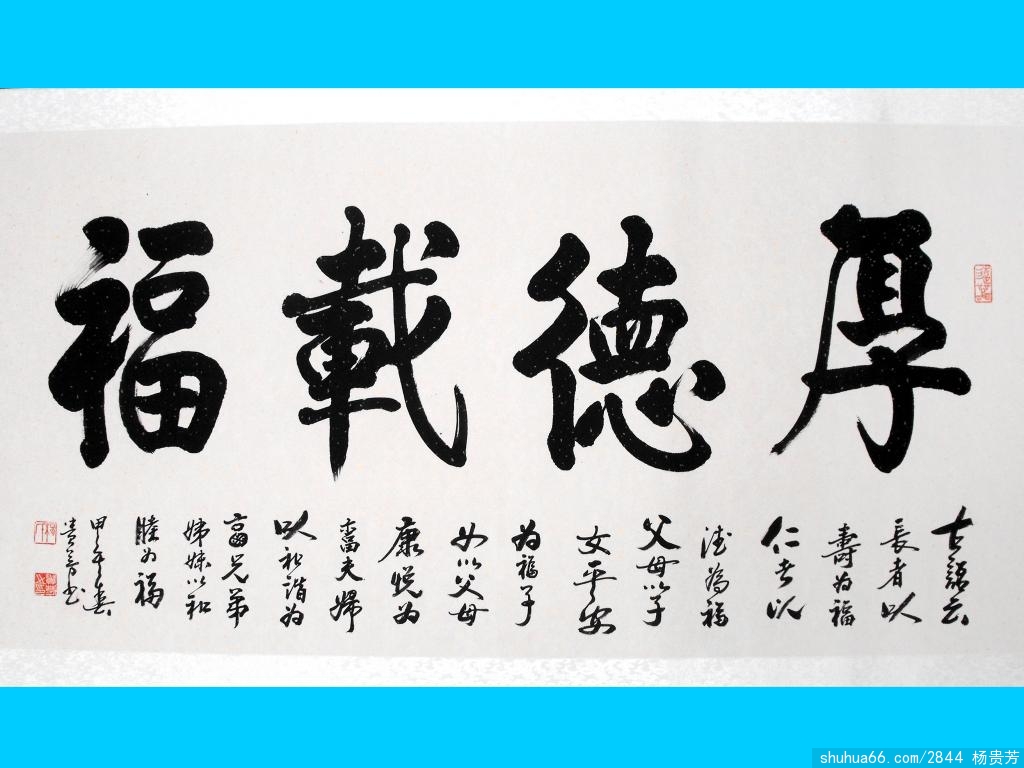 厚德載福
古語云
長者以
壽為福
仁者以
德為福
父母以子
女平安
為福子
女以父母
康悦為
福夫婦
以和諧為
富兄弟
姊妹以和
睦为福
甲午年春
贵芳书
shuhua66.com/2844 杨贵芳